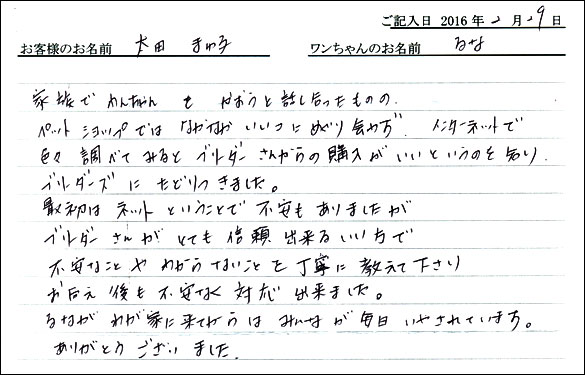 ご記入日 2016 年 2 月 29 日
お客様のお名前 太田 まゆみ ワンちゃんのお名前 るな
家族で わんちゃん を かおうと話し合ったものの、
ペットショップでは なかなか いいコに めぐり会わず、 インターネットで
色々 調べて みると ブリーダー さんからの購入が いいというのを知り、
ブリーダーズ に たどりつきました。
最初は ネット ということで 不安も ありましたが
ブリーダー さんが とても 信頼 出来る いい方で
不安なことや わからないことを 丁寧に 教えて下さり
お迎え 後も 不安なく 対応 出来ました。
るなが わが家に来てからは みんなが毎日 いやされています。
ありがとう ございました。